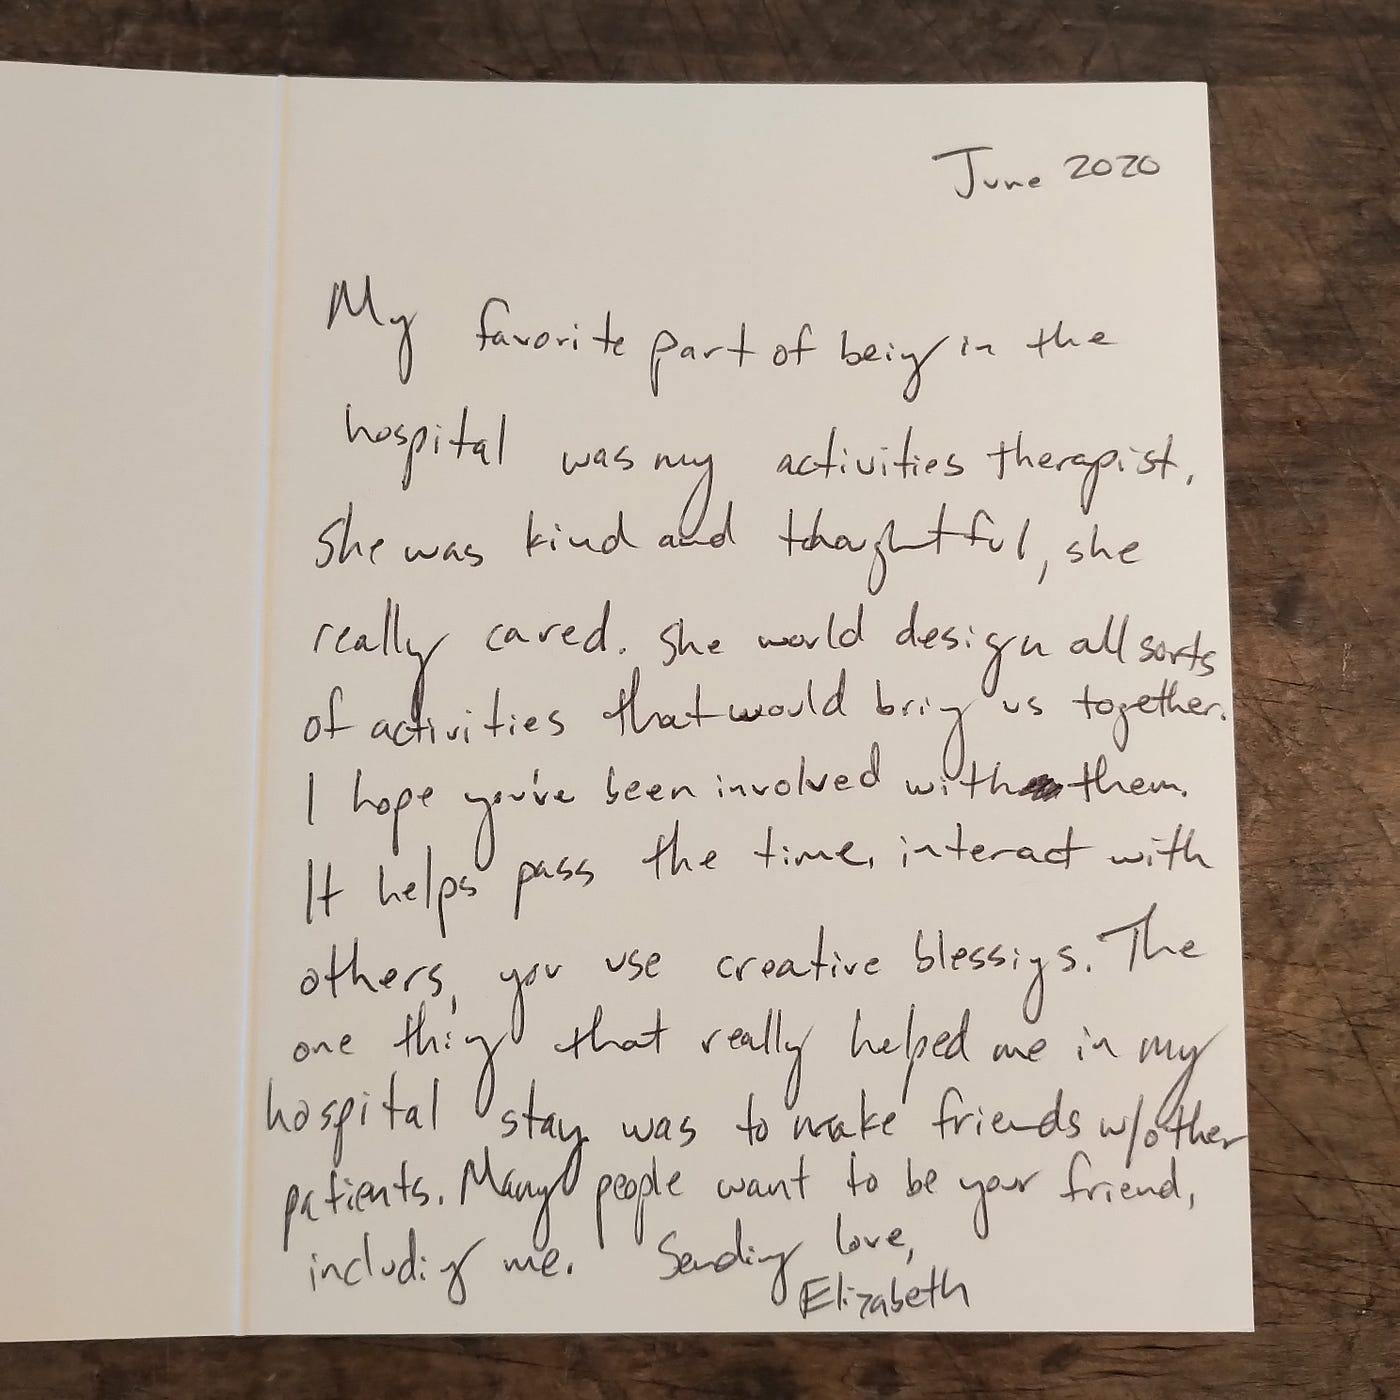 June 2020
My favorite part of being in the
hospital was my activities therapist.
She was kind and thoughtful, she
really cared. She would design all sorts
of activities that would bring us together.
I hope you've been involved with them.
It helps pass the time, interact with
others, you use creative blessings. The
one thing that really helped me in my
hospital stay was to make friends w/other
patients. Many people want to be your friend,
including me. Sending love,
Elizabeth